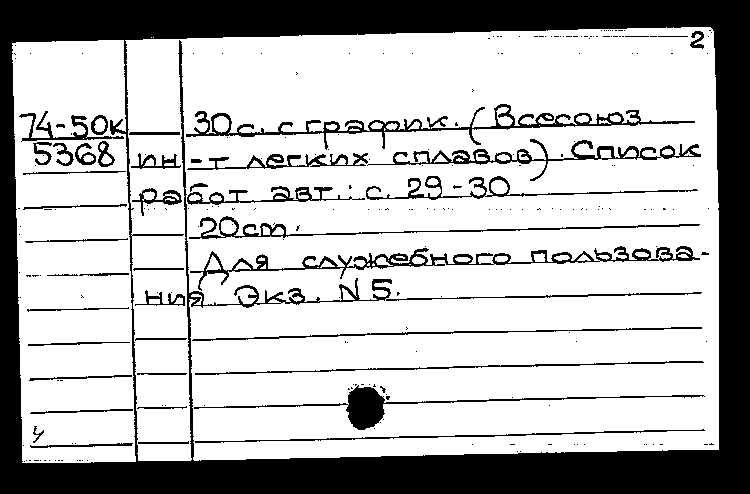 2
74-50к 30с. с график. (Всесоюз.
5368 ин-т легких сплавов). Список
работ авт.: с. 29-30.
20см.
Для служебного пользова-
ния. Экз. N 5.